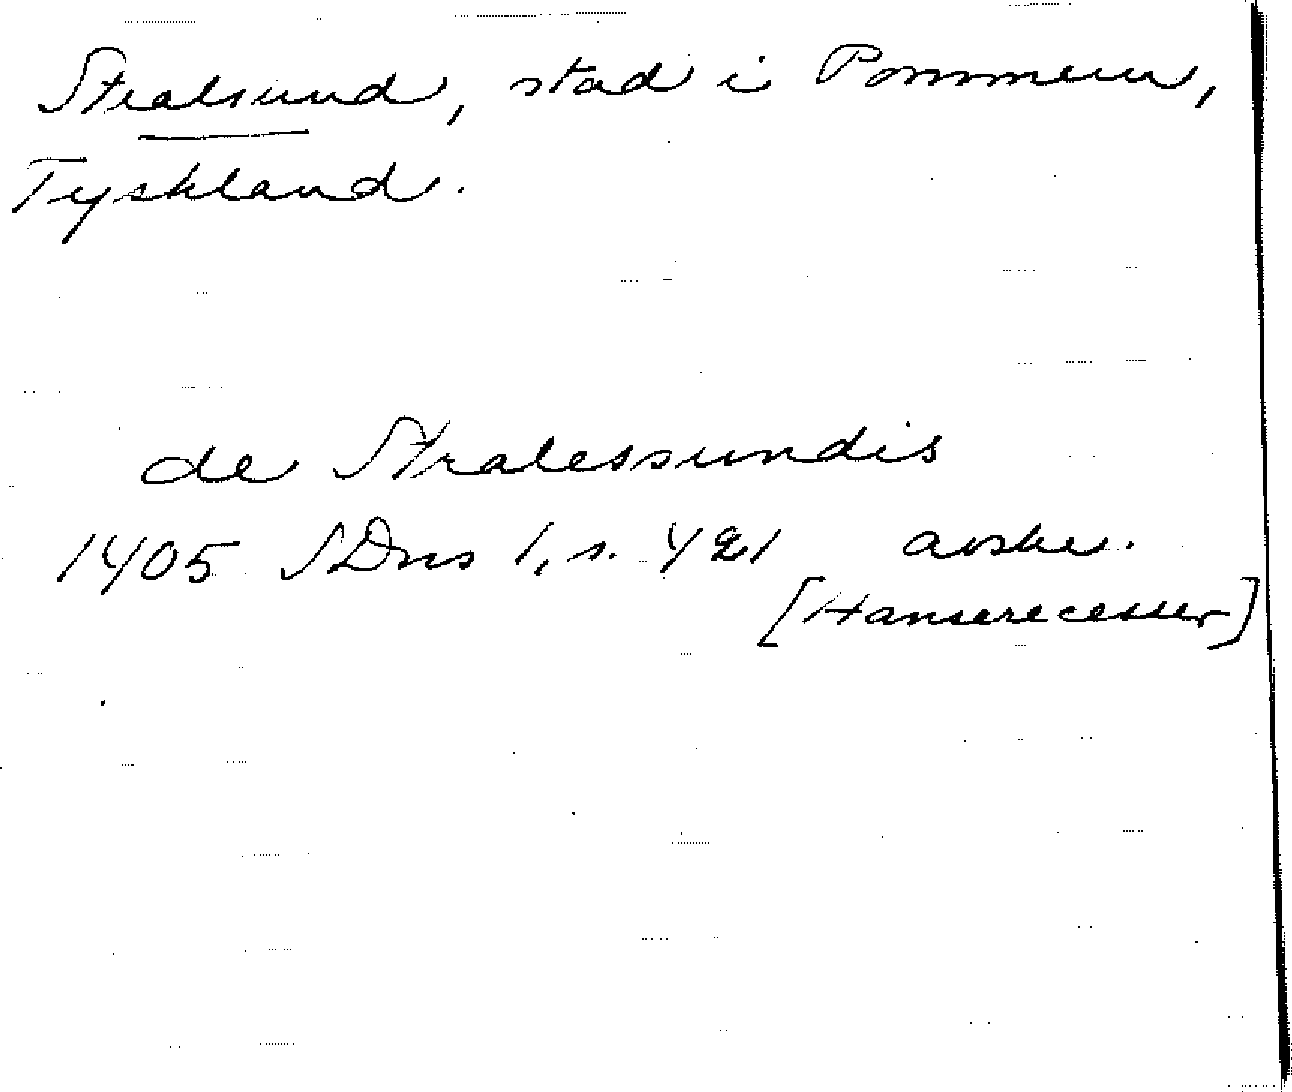 Stralsund, stad i Pommern,
Tyskland.
de Stralessundis
1405 SDns 1, s. 421 avskr.
[Hanserecesser]